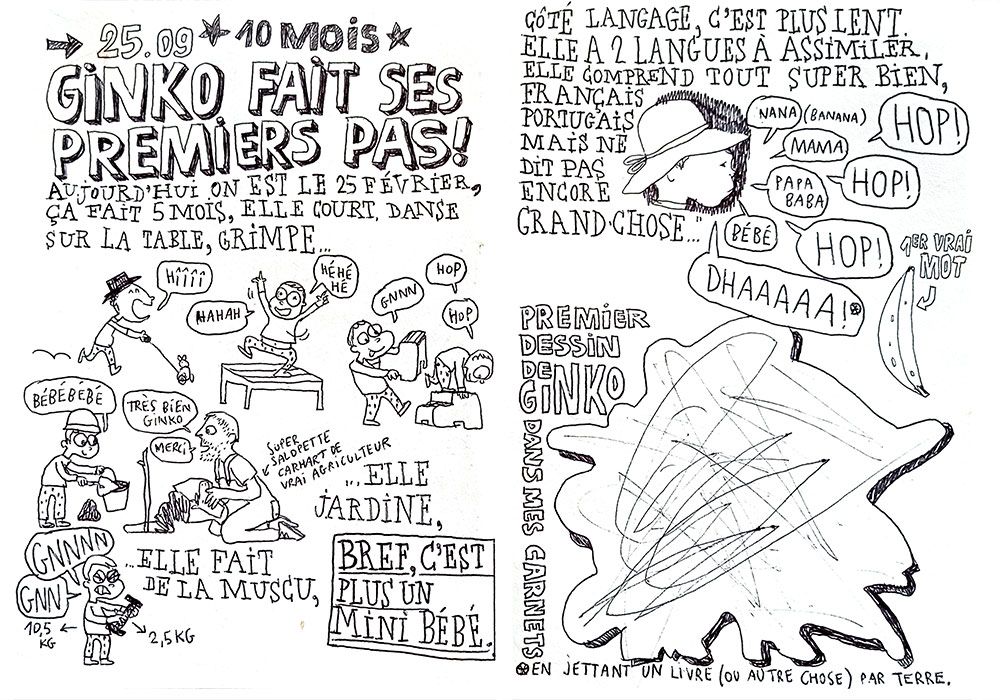 → 25.09 ★ 10 MOIS ★
GINKO FAIT SES
PREMIERS PAS!
AUJOURD'HUI ON EST LE 25 FÉVRIER,
ÇA FAIT 5 MOIS, ELLE COURT, DANSE
SUR LA TABLE, GRIMPE...
HÎÎÎÎ
HAHAH
HÉHÉ
HÉ
GNNN
HOP
HOP
BÉBÉBÉBÉ
TRÈS BIEN
GINKO
MERCI
SUPER
SALOPETTE
CARHART DE
VRAI AGRICULTEUR
...ELLE
JARDINE,
GNNNN
GNN
10,5
KG
2,5KG
...ELLE FAIT
DE LA MUSCU,
BREF, C'EST
PLUS UN
MINI BÉBÉ.
CÔTÉ LANGAGE, C'EST PLUS LENT.
ELLE A 2 LANGUES À ASSIMILER,
ELLE COMPREND TOUT SUPER BIEN,
FRANÇAIS
PORTUGAIS
MAIS NE
DIT PAS
ENCORE
GRAND-CHOSE..."
NANA (BANANA)
HOP!
MAMA
HOP!
PAPA
BABA
BÉBÉ
HOP!
DHAAAAA!*
1ER VRAI
MOT
PREMIER
DESSIN
DE
GINKO
DANS MES CARNETS
*EN JETTANT UN LIVRE (OU AUTRE CHOSE) PAR TERRE.